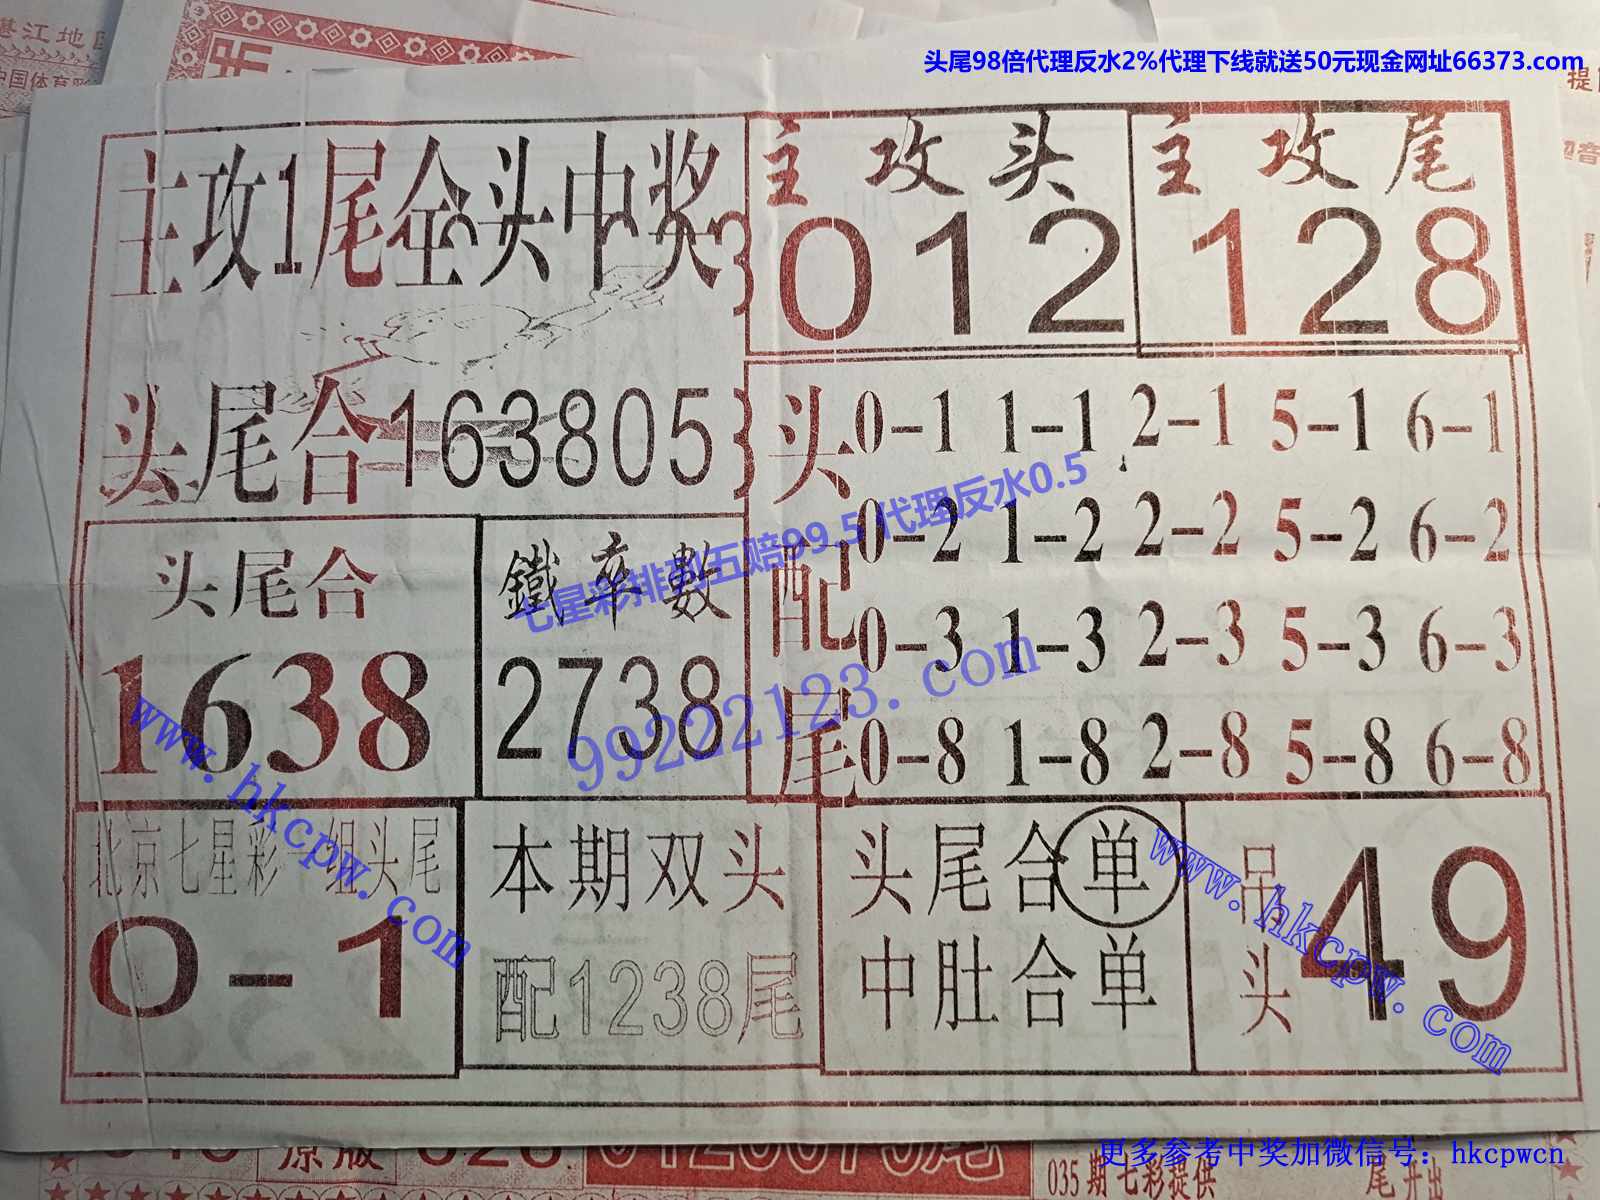 头尾98倍代理反水2%代理下线就送50元现金网址66373.com
湛江地
中国体育
主攻1尾全头中奖
主攻头
012
主攻尾
128
头尾合163805
头配尾
0-1 1-1 2-1 5-1 6-1
0-2 1-2 2-2 5-2 6-2
0-3 1-3 2-3 5-3 6-3
0-8 1-8 2-8 5-8 6-8
头尾合
1638
鐵率數
2738
七星彩排列五赔99.5 代理反水0.5
99222123.com
www.hkcpw.com
北京七星彩一组头尾
0-1
本期双头
配1238尾
头尾合单
中肚合单
吊头
49
www.hkcpw.com
原版
0126875尾
更多参考中奖加微信号：hkcpwcn
035期七彩提供
尾开出